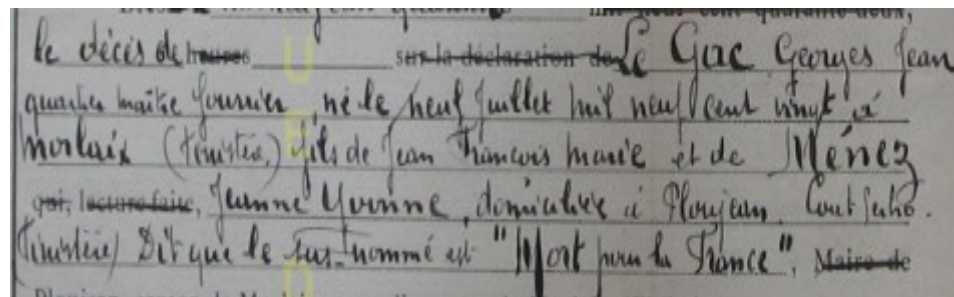 mil neuf cent quarante-deux,
le décès de heures sur la déclaration de Le Gac Georges Jean
quartier maître fourrier né le neuf Juillet mil neuf cent vingt à
Morlaix (Finistère) fils de Jean François Marie et de Ménez
qui, lecture faite, Jeanne Yvonne, domiciliée à Ploujean
Finistère) Dit que le sus-nommé est "Mort pour la France", Maire de